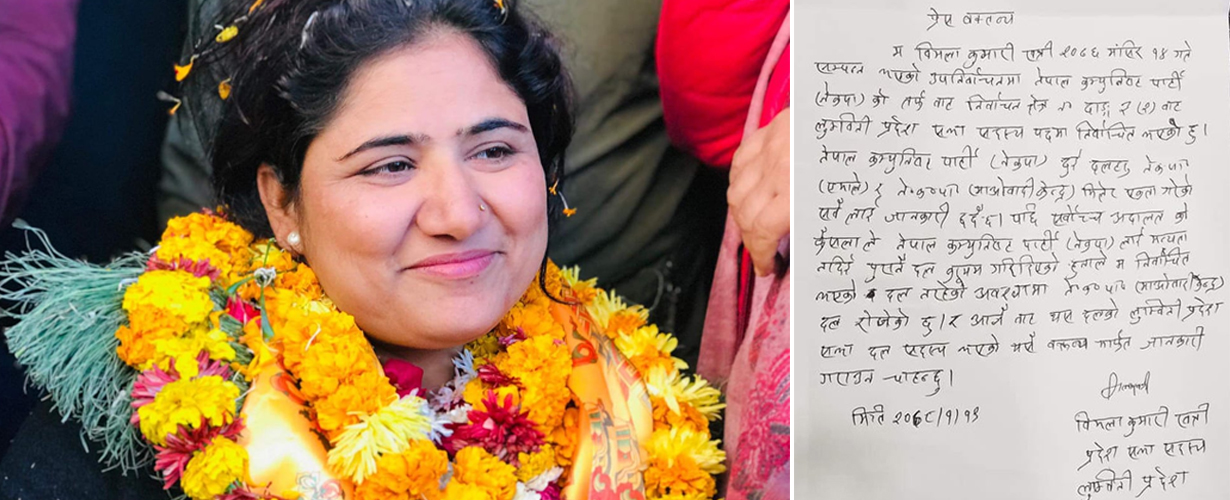 प्रेस वक्तव्य
म विमला कुमारी खत्री २०७६ मंसिर १४ गते
सम्पन्न भएको उपनिर्वाचनमा नेपाल कम्युनिष्ट पार्टी
(नेकपा) को तर्फ बाट निर्वाचन क्षेत्र नं दाङ्ग ३ (२) बाट
लुम्बिनी प्रदेश सभा सदस्य पदमा निर्वाचित भएको हु।
नेपाल कम्युनिष्ट पार्टी (नेकपा) दुई दलहरु नेकपा
(एमाले) र ने.क.पा (माओवादी केन्द्र) मिलेर एकता गरेको
सबै लाई जानकारी हुदैछ। पछि सर्वोच्च अदालत को
फैसला ले नेपाल कम्युनिष्ट पार्टी (नेकपा) लाई मन्यता
नदिई पुरानै दल कायम गरिदिएको हुनाले म निर्वाचित
भएको दल नरहेको अवस्थामा ने.क.पा (माओवादी केन्द्र)
दल रोजेको हु। र आजै बाट यस दलको लुम्बिनी प्रदेश
सभा दल सदस्य भएको यसै वक्तव्य मार्फत जानकारी
गराउन चाहन्छु।
मिति २०७८/१/१३
विमला कुमारी खत्री
प्रदेश सभा सदस्य
लुम्बिनी प्रदेश